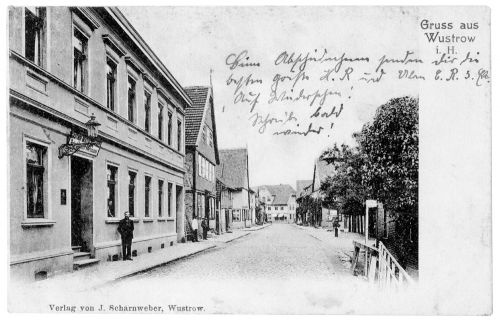 Gruss aus
Wustrow
i. H.
Beim Abschiednehmen senden dir die
besten Grüße H. R. und
Auf Wiedersehen!
Schreib bald
wieder!
Verlag von J. Scharnweber, Wustrow.